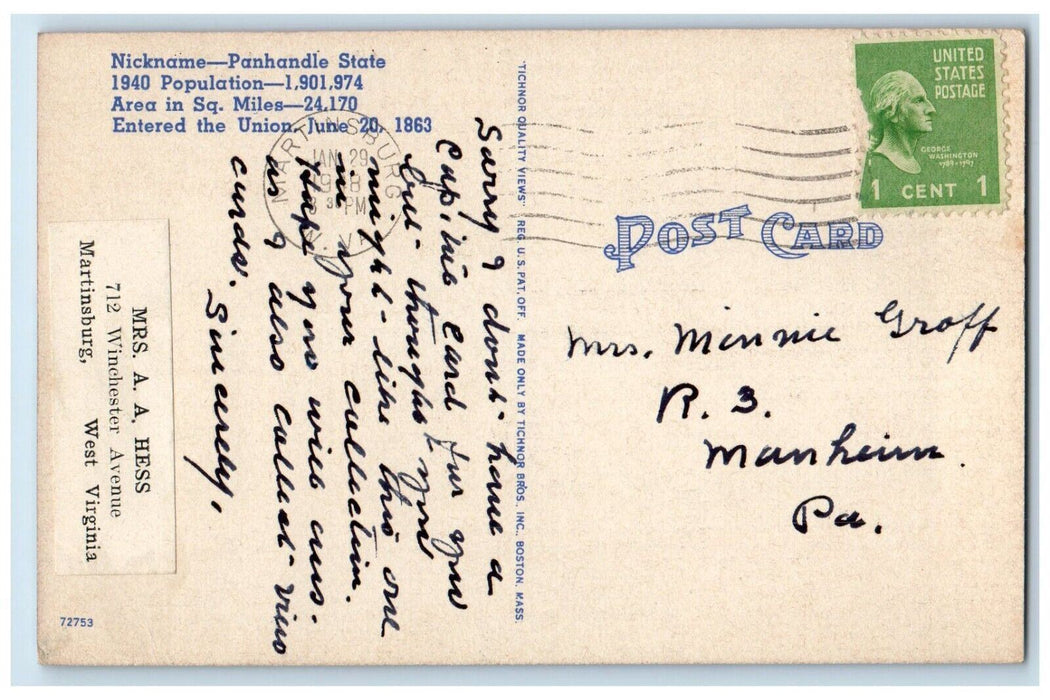 Nickname—Panhandle State
1940 Population—1,901,974
Area in Sq. Miles—24,170
Entered the Union, June 20, 1863
MARTINSBURG
JAN 29
3 30 PM
W. VA.
Sorry I don't have a
Cap, ins card for you
but thought you
might like this one
in your collection.
Hope you will ans.
as I also collect view
cards.
Sincerely,
MRS. A. A. HESS
712 Winchester Avenue
Martinsburg, West Virginia
72753
"TICHNOR QUALITY VIEWS" REG. U. S. PAT. OFF. MADE ONLY BY TICHNOR BROS. INC., BOSTON, MASS.
UNITED
STATES
POSTAGE
GEORGE
WASHINGTON
1789-1797
1 CENT 1
POST CARD
Mrs. Minnie Groff
R. 3.
Manheim.
Pa.